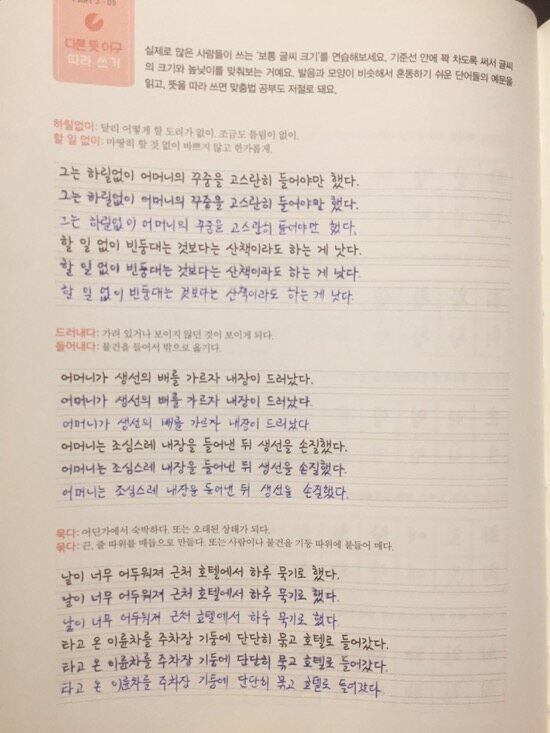 PART 3 - 05
다른 뜻 어구
따라 쓰기
실제로 많은 사람들이 쓰는 '보통 글씨 크기'를 연습해보세요. 기준선 안에 꽉 차도록 써서 글씨
의 크기와 높낮이를 맞춰보는 거예요. 발음과 모양이 비슷해서 혼동하기 쉬운 단어들의 예문을
읽고, 뜻을 따라 쓰면 맞춤법 공부도 저절로 돼요.
하릴없이: 달리 어떻게 할 도리가 없이. 조금도 틀림이 없이.
할 일 없이: 마땅히 할 것 없이 바쁘지 않고 한가롭게.
그는 하릴없이 어머니의 꾸중을 고스란히 들어야만 했다.
그는 하릴없이 어머니의 꾸중을 고스란히 들어야만 했다.
그는 하릴없이 어머니의 꾸중을 고스란히 들어야만 했다.
할 일 없이 빈둥대는 것보다는 산책이라도 하는 게 낫다.
할 일 없이 빈둥대는 것보다는 산책이라도 하는 게 낫다.
할 일 없이 빈둥대는 것보다는 산책이라도 하는 게 낫다.
드러내다: 가려 있거나 보이지 않던 것이 보이게 되다.
들어내다: 물건을 들어서 밖으로 옮기다.
어머니가 생선의 배를 가르자 내장이 드러났다.
어머니가 생선의 배를 가르자 내장이 드러났다.
어머니가 생선의 배를 가르자 내장이 드러났다.
어머니는 조심스레 내장을 들어낸 뒤 생선을 손질했다.
어머니는 조심스레 내장을 들어낸 뒤 생선을 손질했다.
어머니는 조심스레 내장을 들어낸 뒤 생선을 손질했다.
묵다: 어딘가에서 숙박하다. 또는 오래된 상태가 되다.
묶다: 끈, 줄 따위를 매듭으로 만들다. 또는 사람이나 물건을 기둥 따위에 붙들어 매다.
날이 너무 어두워져 근처 호텔에서 하루 묵기로 했다.
날이 너무 어두워져 근처 호텔에서 하루 묵기로 했다.
날이 너무 어두워져 근처 호텔에서 하루 묵기로 했다.
타고 온 이륜차를 주차장 기둥에 단단히 묶고 호텔로 들어갔다.
타고 온 이륜차를 주차장 기둥에 단단히 묶고 호텔로 들어갔다.
타고 온 이륜차를 주차장 기둥에 단단히 묶고 호텔로 들어갔다.